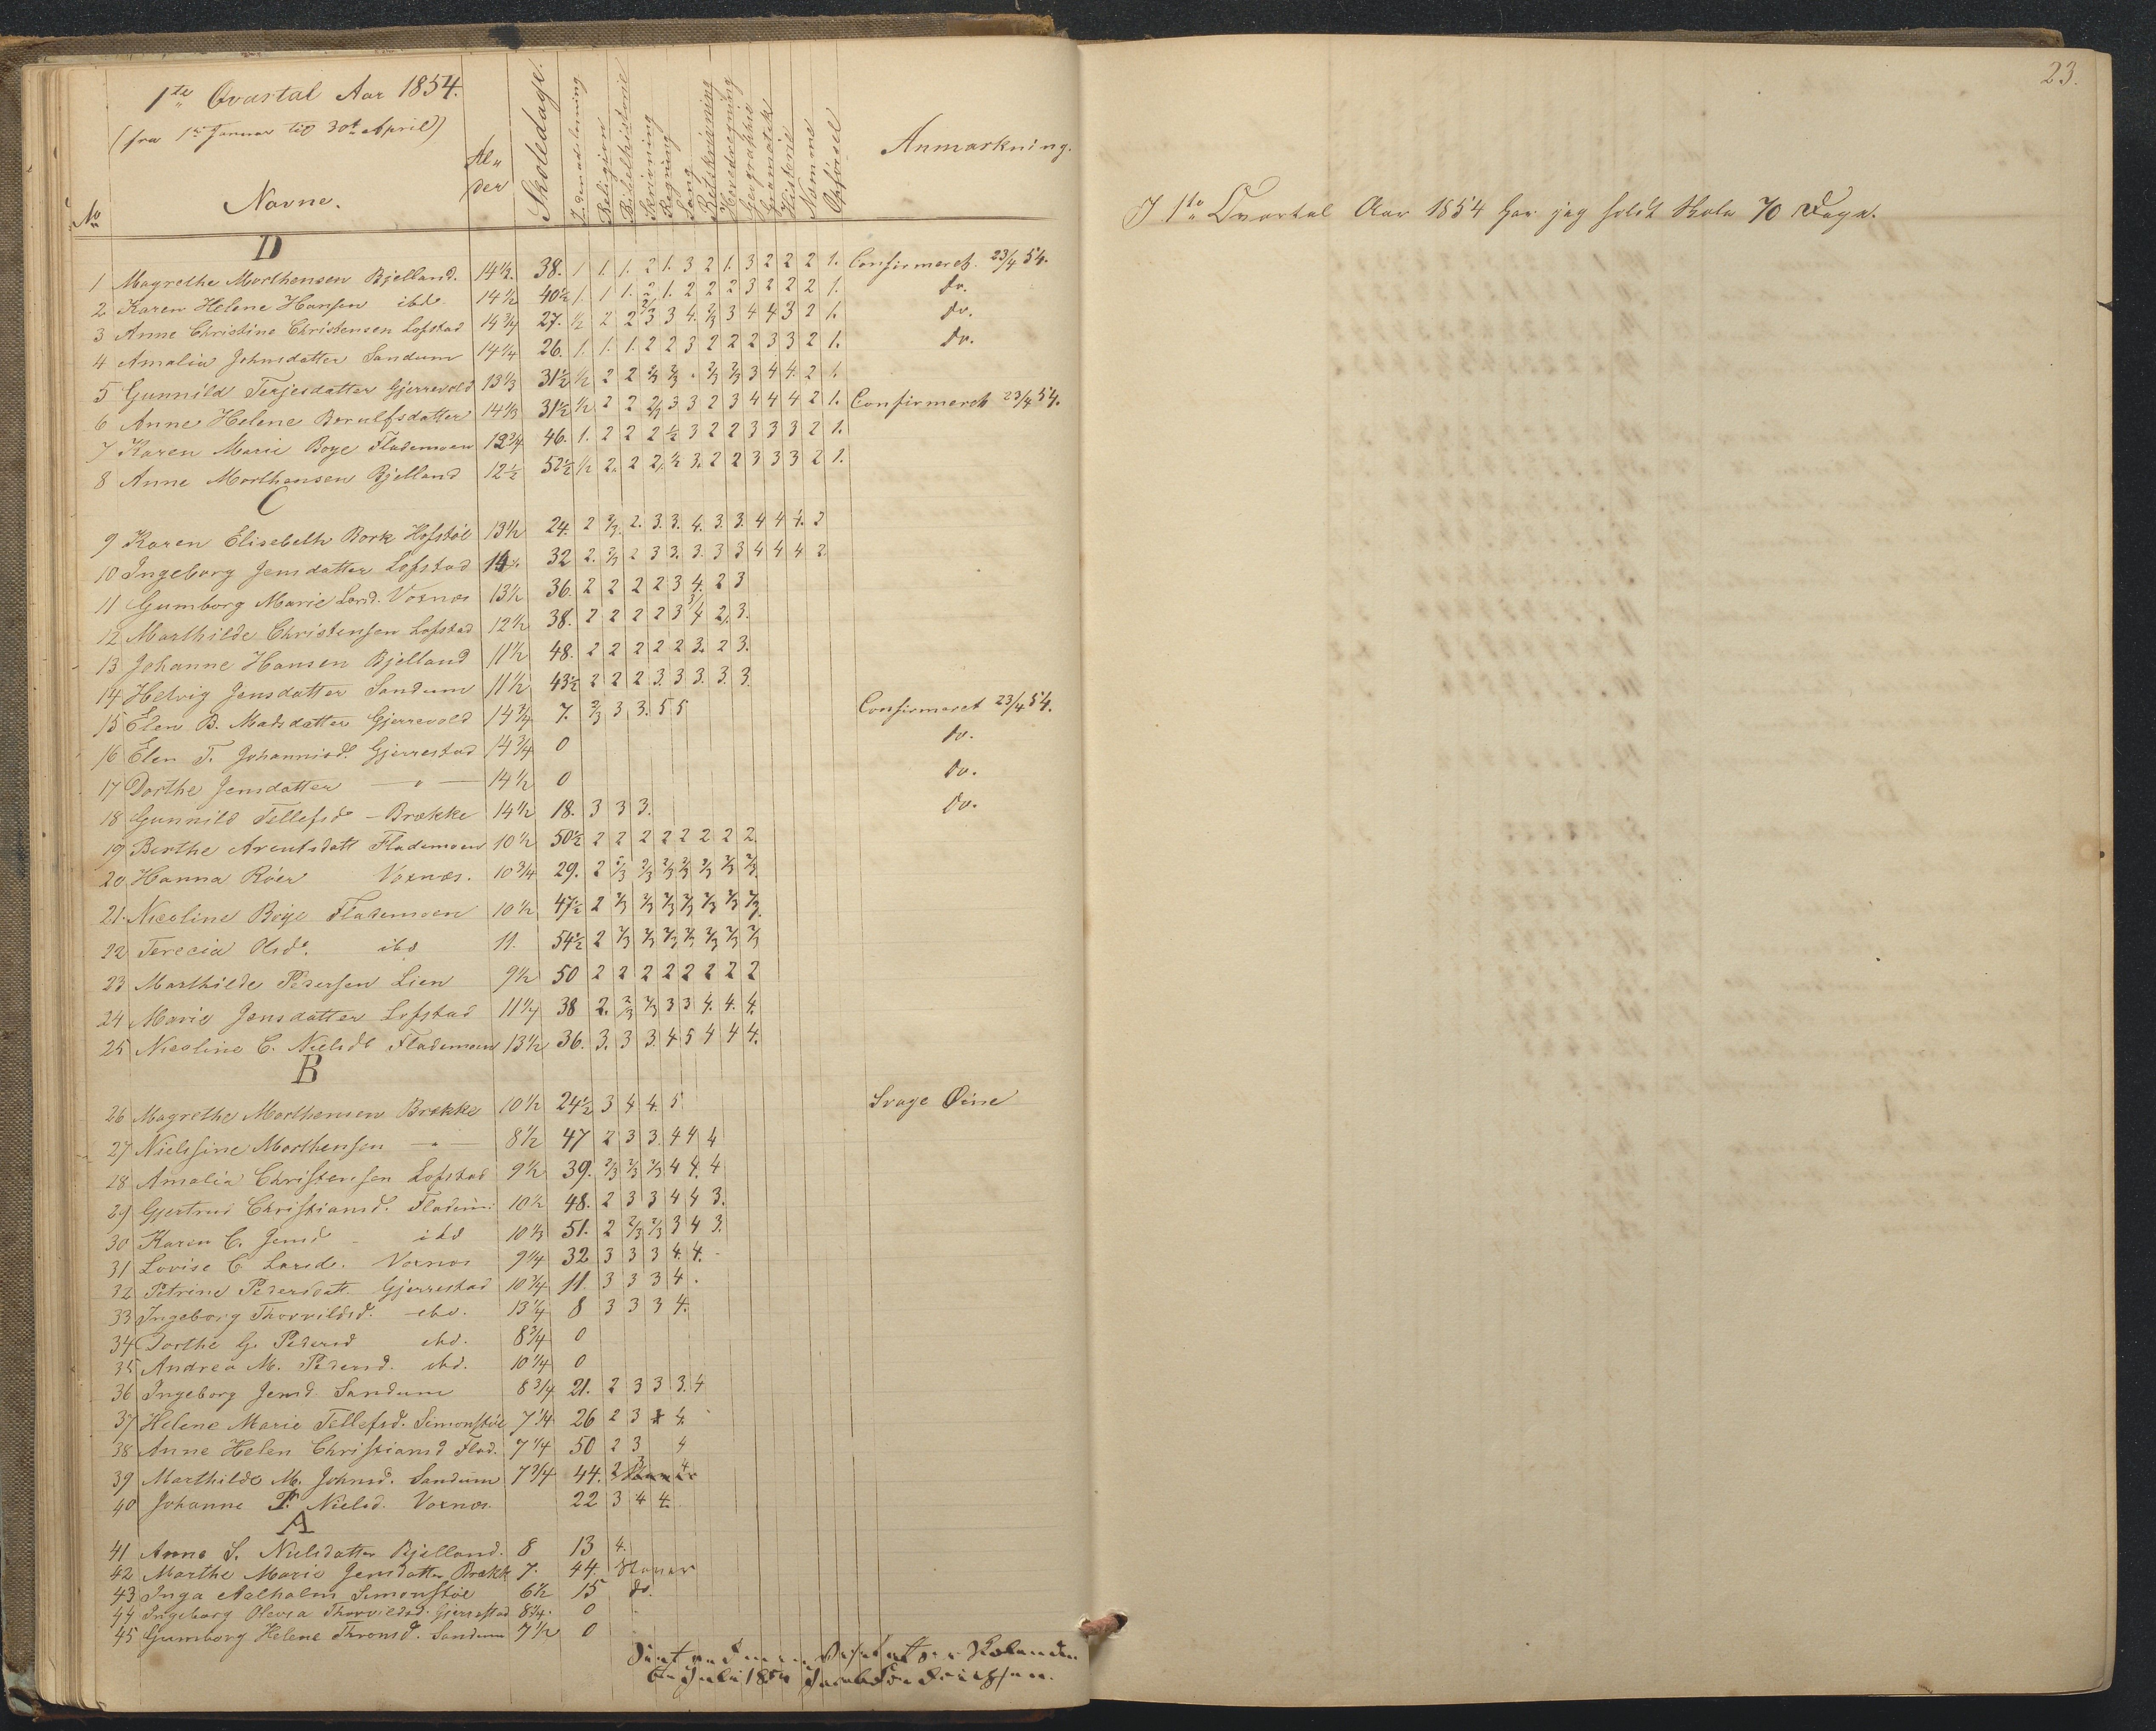 1te Qvartal Aar 1854.
(fra 1ste Januar til 30te April)
No Navne. Al- der Skoledage. Religion Bibelhistorie Skrivning Regning Sang Hovedregning Geographie Historie Opførsel Anmærkning.
D
1 Magrethe Morthensen Bjelland. 14½. 38. 1 1. 1. 2 1. 3 2 1. 3 2 2 2 1. Confirmeret 23/4 54.
2 Karen Helene Hansen ibd. 14½ 40½ 1. 1 1. 2 1. 2 2 2 3 2 2 2 1. do.
3 Anne Christine Christensen Lofstad 14¾ 27. ½ 2 2 2/3 3 4. 2/3 3 4 4 3 2 1. do.
4 Amalia Johnsdatter Sandum 14¼ 26. 1. 1. 1. 2 2 3 2 2 2 3 3 2 1. do.
5 Gunnild Terjesdatter Gjerrevold 13⅓ 31½ ½ 2 2 2/3 2/3 . 2/3 2/3 3 4 4. 2 1
6 Anne Helene Berulfsdatter 14⅓ 31½ ½ 2 2 2/3 3 3 2 3 4 4 4 2 1. Confirmeret 23/4 54.
7 Karen Marie Boye Flademoen 12¾ 46. 1. 2 2 2 ½ 3 2 2 3 3 3 2 1.
8 Anne Morthensen Bjelland 12½ 52½ ½ 2. 2 2, ½ 3. 2 2 3 3 3 2 1.
C
9 Karen Elisebeth Bork Hofstøl 13½ 24. 2 2/3. 2. 3. 3. 4. 3. 3. 4 4 4. 2
10 Ingeborg Jensdatter Lofstad 14 32 2. 2/3 2 3 3. 3. 3 3 4 4 4 2
11 Gumborg Marie Larsd. Voxnæs 13½ 36. 2 2 2 2 3 4. 2 3
12 Marthilde Christensen Lofstad 12½ 38. 2 2 2 2 3 3/4 2, 3.
13 Johanne Hansen Bjelland 11½ 48. 2 2 2 2 2 3. 2 3.
14 Helvig Jensdatter Sandum 11½ 43½ 2 2 2 3. 3 3. 3. 3.
15 Elen B. Madsdatter Gjerrevold 14¾ 7. 2/3 3 3. 5 5 Confirmeret 23/4 54.
16 Elen T. Johannisd. Gjerrestad 14¾ 0 do.
17 Dorthe Jensdatter — " — 14½ 0 do.
18 Gunnild Tellefsd. - Brække 14½ 18. 3 3 3. do.
19 Berthe Arentsdatt Flademoen 10½ 50½ 2 2 2 2 2 2 2 2.
20 Hanna Röer Voxnæs. 10¾ 29. 2 2/3 2/3 2/3 2/3 2/3 2/3 2/3
21 Nicoline Boye Flademoen 10½ 47½ 2 2/3 2/3 2/3 2/3 2/3 2/3 2/3.
22 Terecia Olsd. ibd 11. 54½ 2 2/3 2/3 2/3 2/3 2/3 2/3 2/3
23 Marthilde Pedersen Lien 9½ 50 2 2 2 2 2 2 2 2
24 Marie Jensdatter Lofstad 11¼ 38 2. 2/3 2/3 3 3 4. 4. 4.
25 Nicoline C. Nielsd. Flademoen 13½ 36. 3. 3 3. 4 5 4 4 4.
B
26 Magrethe Morthensen Brække 10½ 24½ 3 4 4. 5 Svage Øine
27 Nielsine Morthensen — " — 8½ 47 2 3 3. 4 4 4
28 Amalia Christensen Lofstad 9½ 39. 2/3 2/3 2/3 4 4. 4
29 Gjertrud Christiansd. Fladem: 10½ 48. 2 3 3 4 4 3.
30 Karen C. Jensd - ibd 10⅓ 51. 2 2/3 2/3 3 4 3.
31 Lovise C. Larsd. Voxnæs 9¼ 32 3 3 3 4. 4.
32 Petrine Pedersdatt. Gjerrestad 10¾ 11. 3 3 3 4.
33 Ingeborg Thorvildsd. ibd. 13¼ 8 3 3 3 4.
34 Dorthe G. Pedersd ibd. 8¾ 0
35 Andrea M. Pedersd. ibd. 10¼ 0
36 Ingeborg Jensd. Sandum 8¾ 21. 2 3 3 3. 4
37 Helene Marie Tellefsd. Simonstøl 7¼ 26 2 3 4.
38 Anne Helen Christiansd Flad. 7¼ 50 2 3 4
39 Marthilde M. Johnsd. Sandum 7¾ 44. 2 3 4
40 Johanne T. Nielsd. Voxnæs. 22 3 4 4.
A
41 Anne S. Nielsdatter Bjelland. 8 13 4.
42 Marthe Marie Jensdatter Brækk 7. 44. Staver
43 Inga Aalholm Simonstøl 6½ 15 do.
44 Ingeborg Olevia Thorvildsd. Gjerrestad 8¾. 0
45 Gumborg Helene Thronsd. Sandum 7½ 0
Juli 1854
23.
I 1te Qvartal Aar 1854 har jeg holdt Skole 70 Dage.